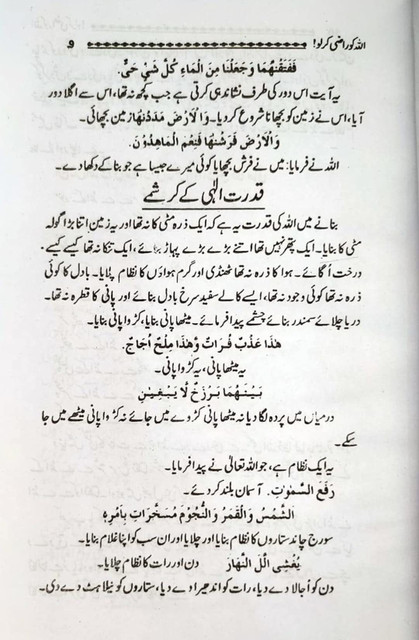 اللہ کو راضی کرلو! 9
فَفَتَقْنٰهُمَا وَجَعَلْنَا مِنَ الْمَاءِ كُلَّ شَيْ حَيٍّ.
یہ آیت اس دور کی طرف نشاندہی کرتی ہے جب کچھ نہ تھا، اس سے اگلا دور
آیا، اس نے زمین کو بچھانا شروع کر دیا۔ وَالْاَرْضَ مَدَدْنٰهَا زمین بچھائی۔
وَالْاَرْضَ فَرَشْنٰهَا فَنِعْمَ الْمَاهِدُوْنَ.
اللہ نے فرمایا: میں نے فرش بچھایا کوئی میرے جیسا ہے جو بنا کے دکھا دے۔
قدرت الٰہی کے کرشمے
بنانے میں اللہ کی قدرت یہ ہے کہ ایک ذرہ مٹی کا نہ تھا اور یہ زمین اتنا بڑا گولہ
مٹی کا بنایا۔ ایک پتھر نہیں تھا اتنے بڑے بڑے پہاڑ بنائے، ایک تنکا نہ تھا کیسے کیسے
درخت اُگائے۔ ہوا کا ذرہ نہ تھا ٹھنڈی اور گرم ہواؤں کا نظام چلایا۔ بادل کا کوئی
ذرہ نہ تھا کوئی وجود نہ تھا، ایسے کالے سفید سرخ بادل بنائے اور پانی کا قطرہ نہ تھا۔
دریا چلائے سمندر بنائے چشمے پیدا فرمائے۔ میٹھا پانی بنایا، کڑوا پانی بنایا۔
هٰذَا عَذْبٌ فُرَاتٌ وَّهٰذَا مِلْحٌ اُجَاجٌ.
یہ میٹھا پانی، یہ کڑوا پانی۔
بَيْنَهُمَا بَرْزَخٌ لَّا يَبْغِيٰنِ
درمیاں میں پردہ لگا دیا نہ میٹھا پانی کڑوے میں جائے نہ کڑوا پانی میٹھے میں جا
سکے۔
یہ ایک نظام ہے، جو اللہ تعالیٰ نے پیدا فرمایا۔
رَفَعَ السَّمٰوٰتِ. آسمان بلند کر دئے۔
الشَّمْسُ وَالْقَمَرُ وَالنُّجُوْمُ مُسَخَّرَاتٍ بِاَمْرِهٖ
سورج چاند ستاروں کا نظام بنایا اور چلایا اور ان سب کو اپنا غلام بنایا۔
يُغْشِي الَّلَ النَّهَارَ دن اور رات کا نظام چلایا۔
دن کو اُجالا دے دیا، رات کو اندھیرا دے دیا، ستاروں کو ٹیلاہٹ دے دی۔